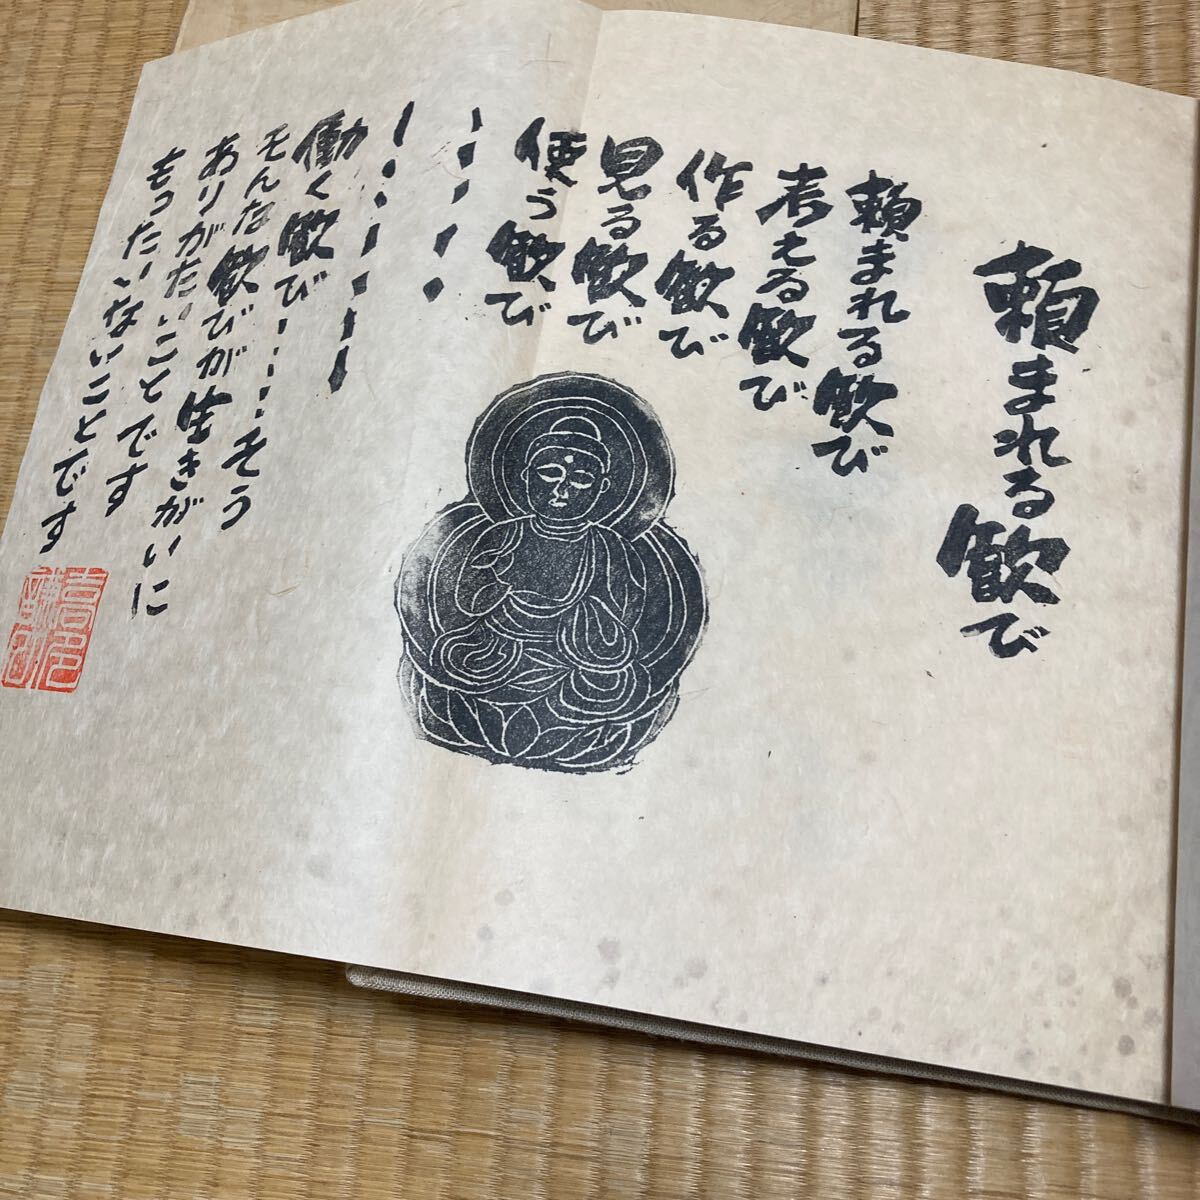 頼まれる歓び
頼まれる歓び
考える歓び
作る歓び
見る歓び
使う歓び
働く歓び………そう
そんな歓びが生きがいに
ありがたいことです
もったいないことです